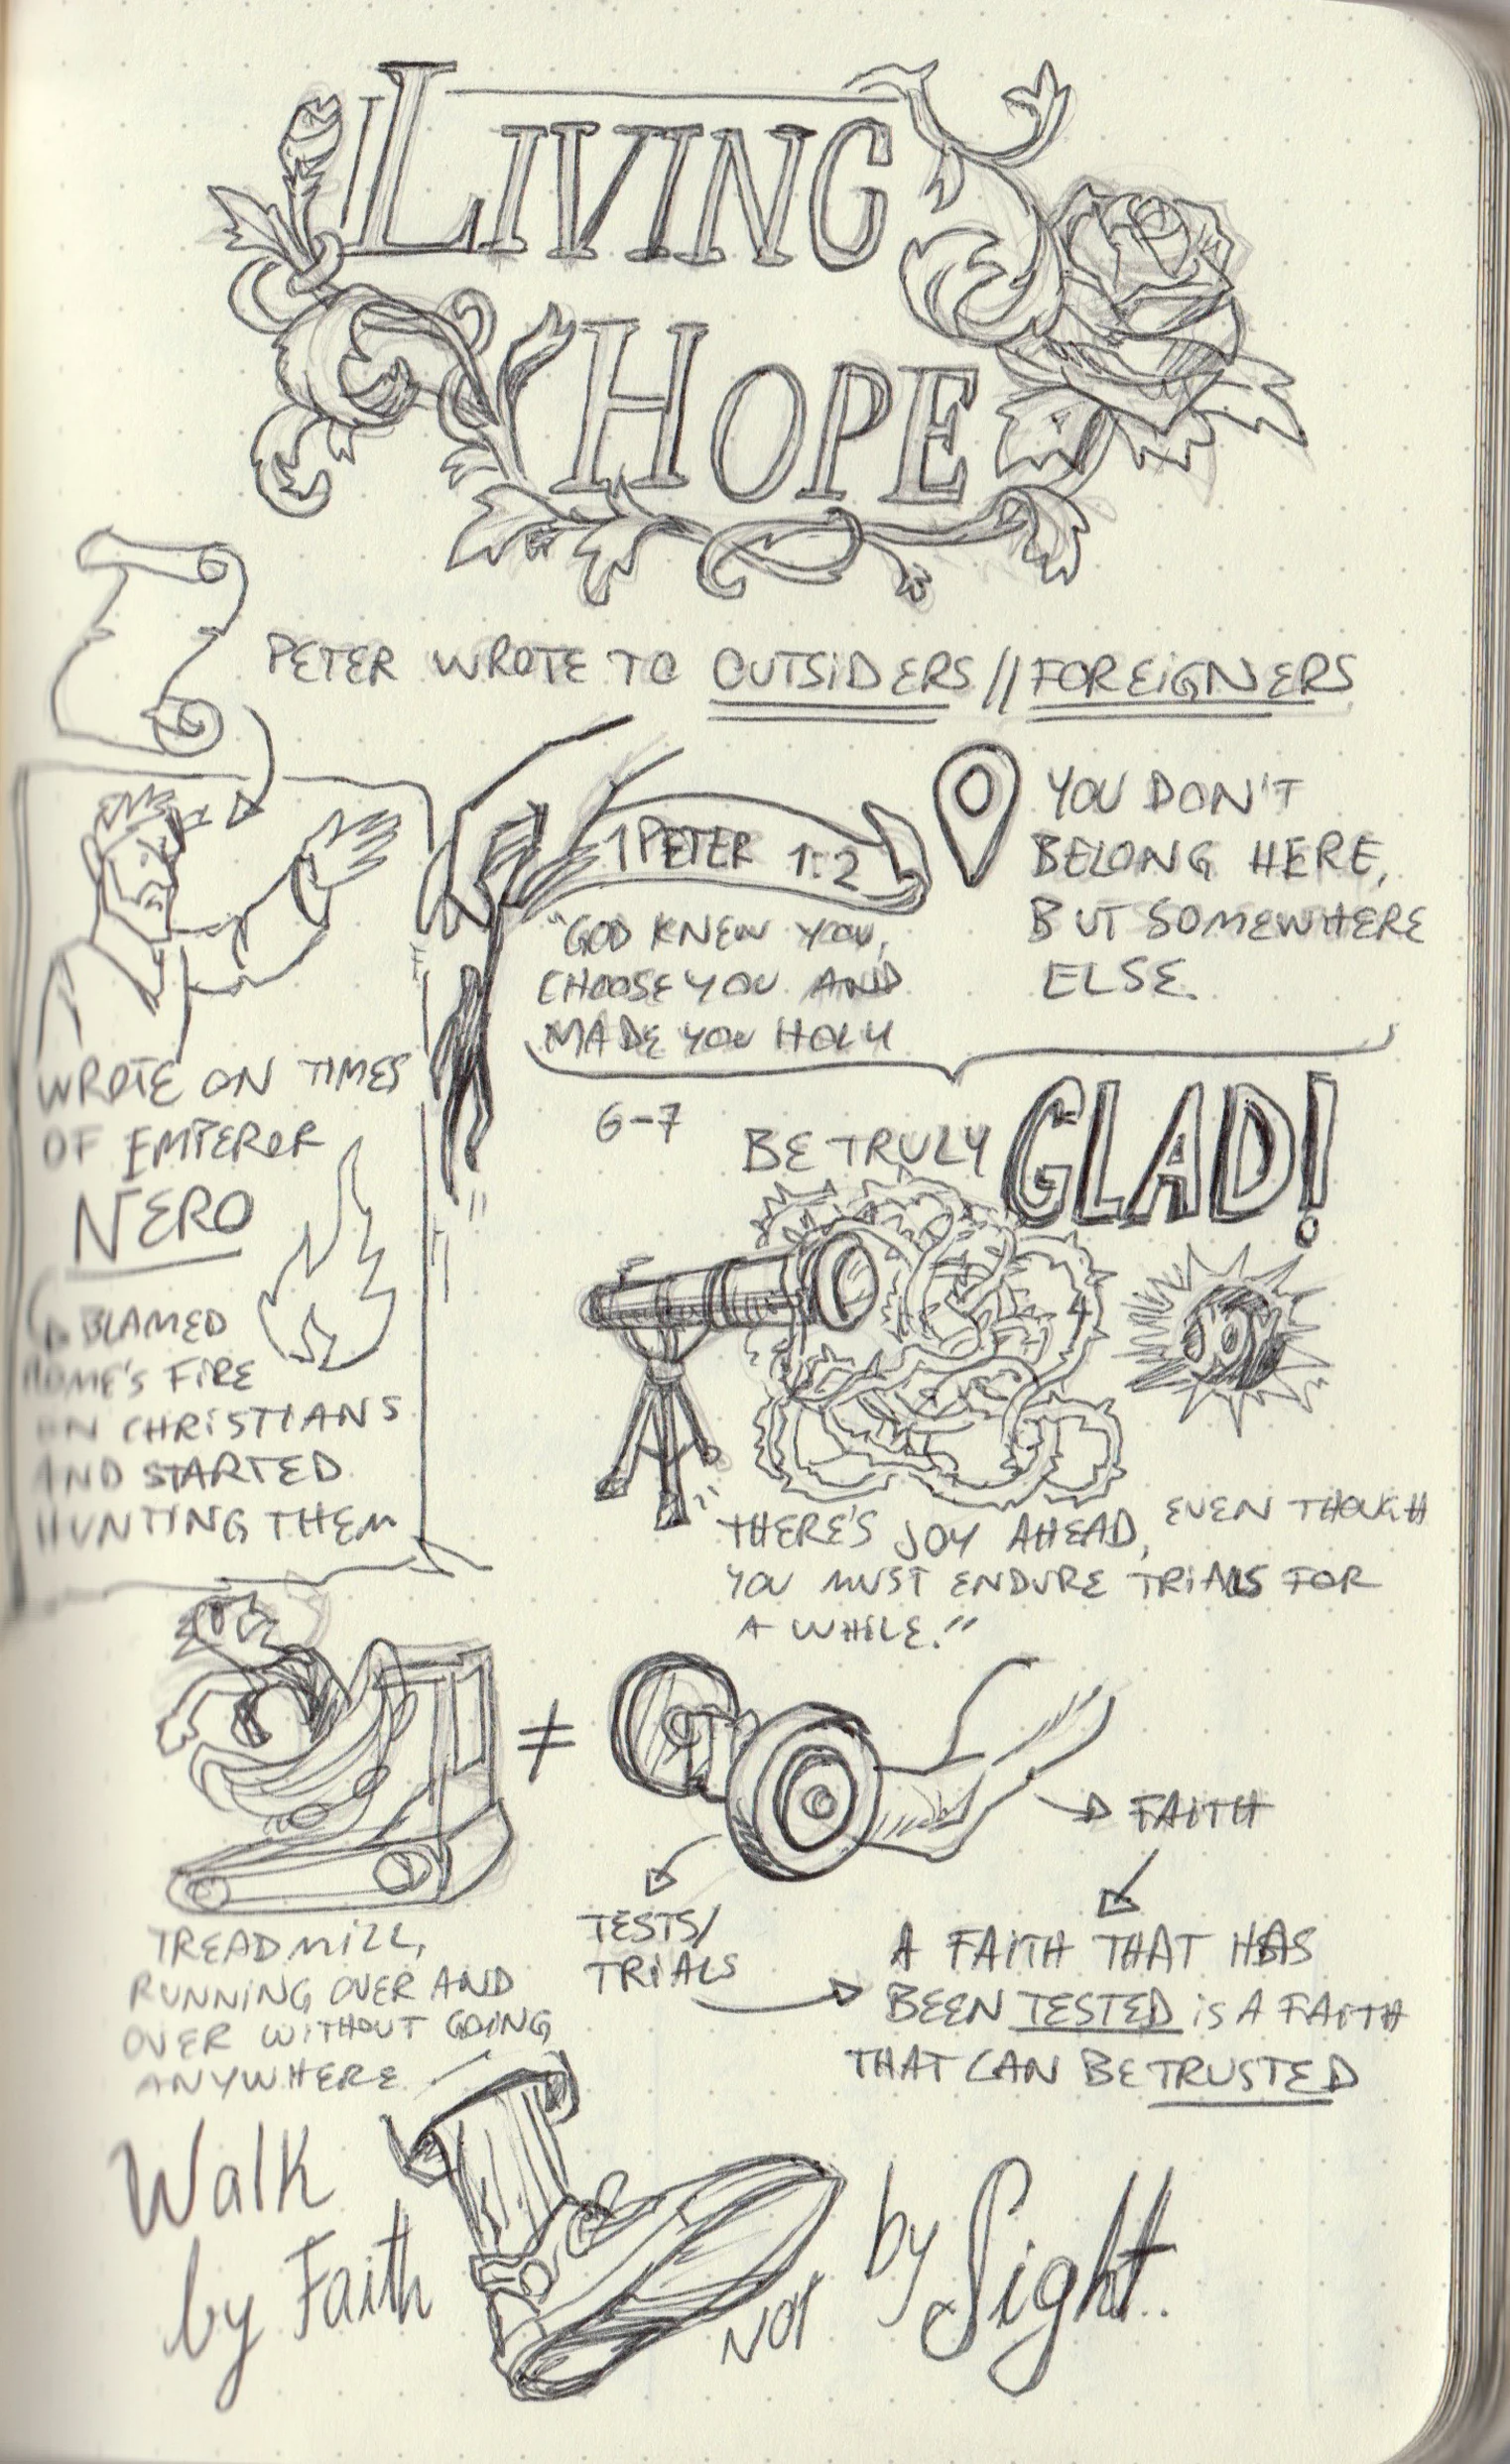 LIVING
HOPE
PETER WROTE TO OUTSIDERS // FOREIGNERS
1 PETER 1:2
"GOD KNEW YOU,
CHOOSE YOU AND
MADE YOU HOLY
YOU DON'T
BELONG HERE,
BUT SOMEWHERE
ELSE.
WROTE ON TIMES
OF EMPEROR
NERO
BLAMED
ROME'S FIRE
ON CHRISTIANS
AND STARTED
HUNTING THEM
6-7
BE TRULY GLAD!
JOY
"THERE'S JOY AHEAD, EVEN THOUGH
YOU MUST ENDURE TRIALS FOR
A WHILE."
≠
TREADMILL,
RUNNING OVER AND
OVER WITHOUT GOING
ANYWHERE
TESTS/
TRIALS
→ FAITH
A FAITH THAT HAS
BEEN TESTED IS A FAITH
THAT CAN BE TRUSTED
Walk
by Faith
NOT
by Sight.